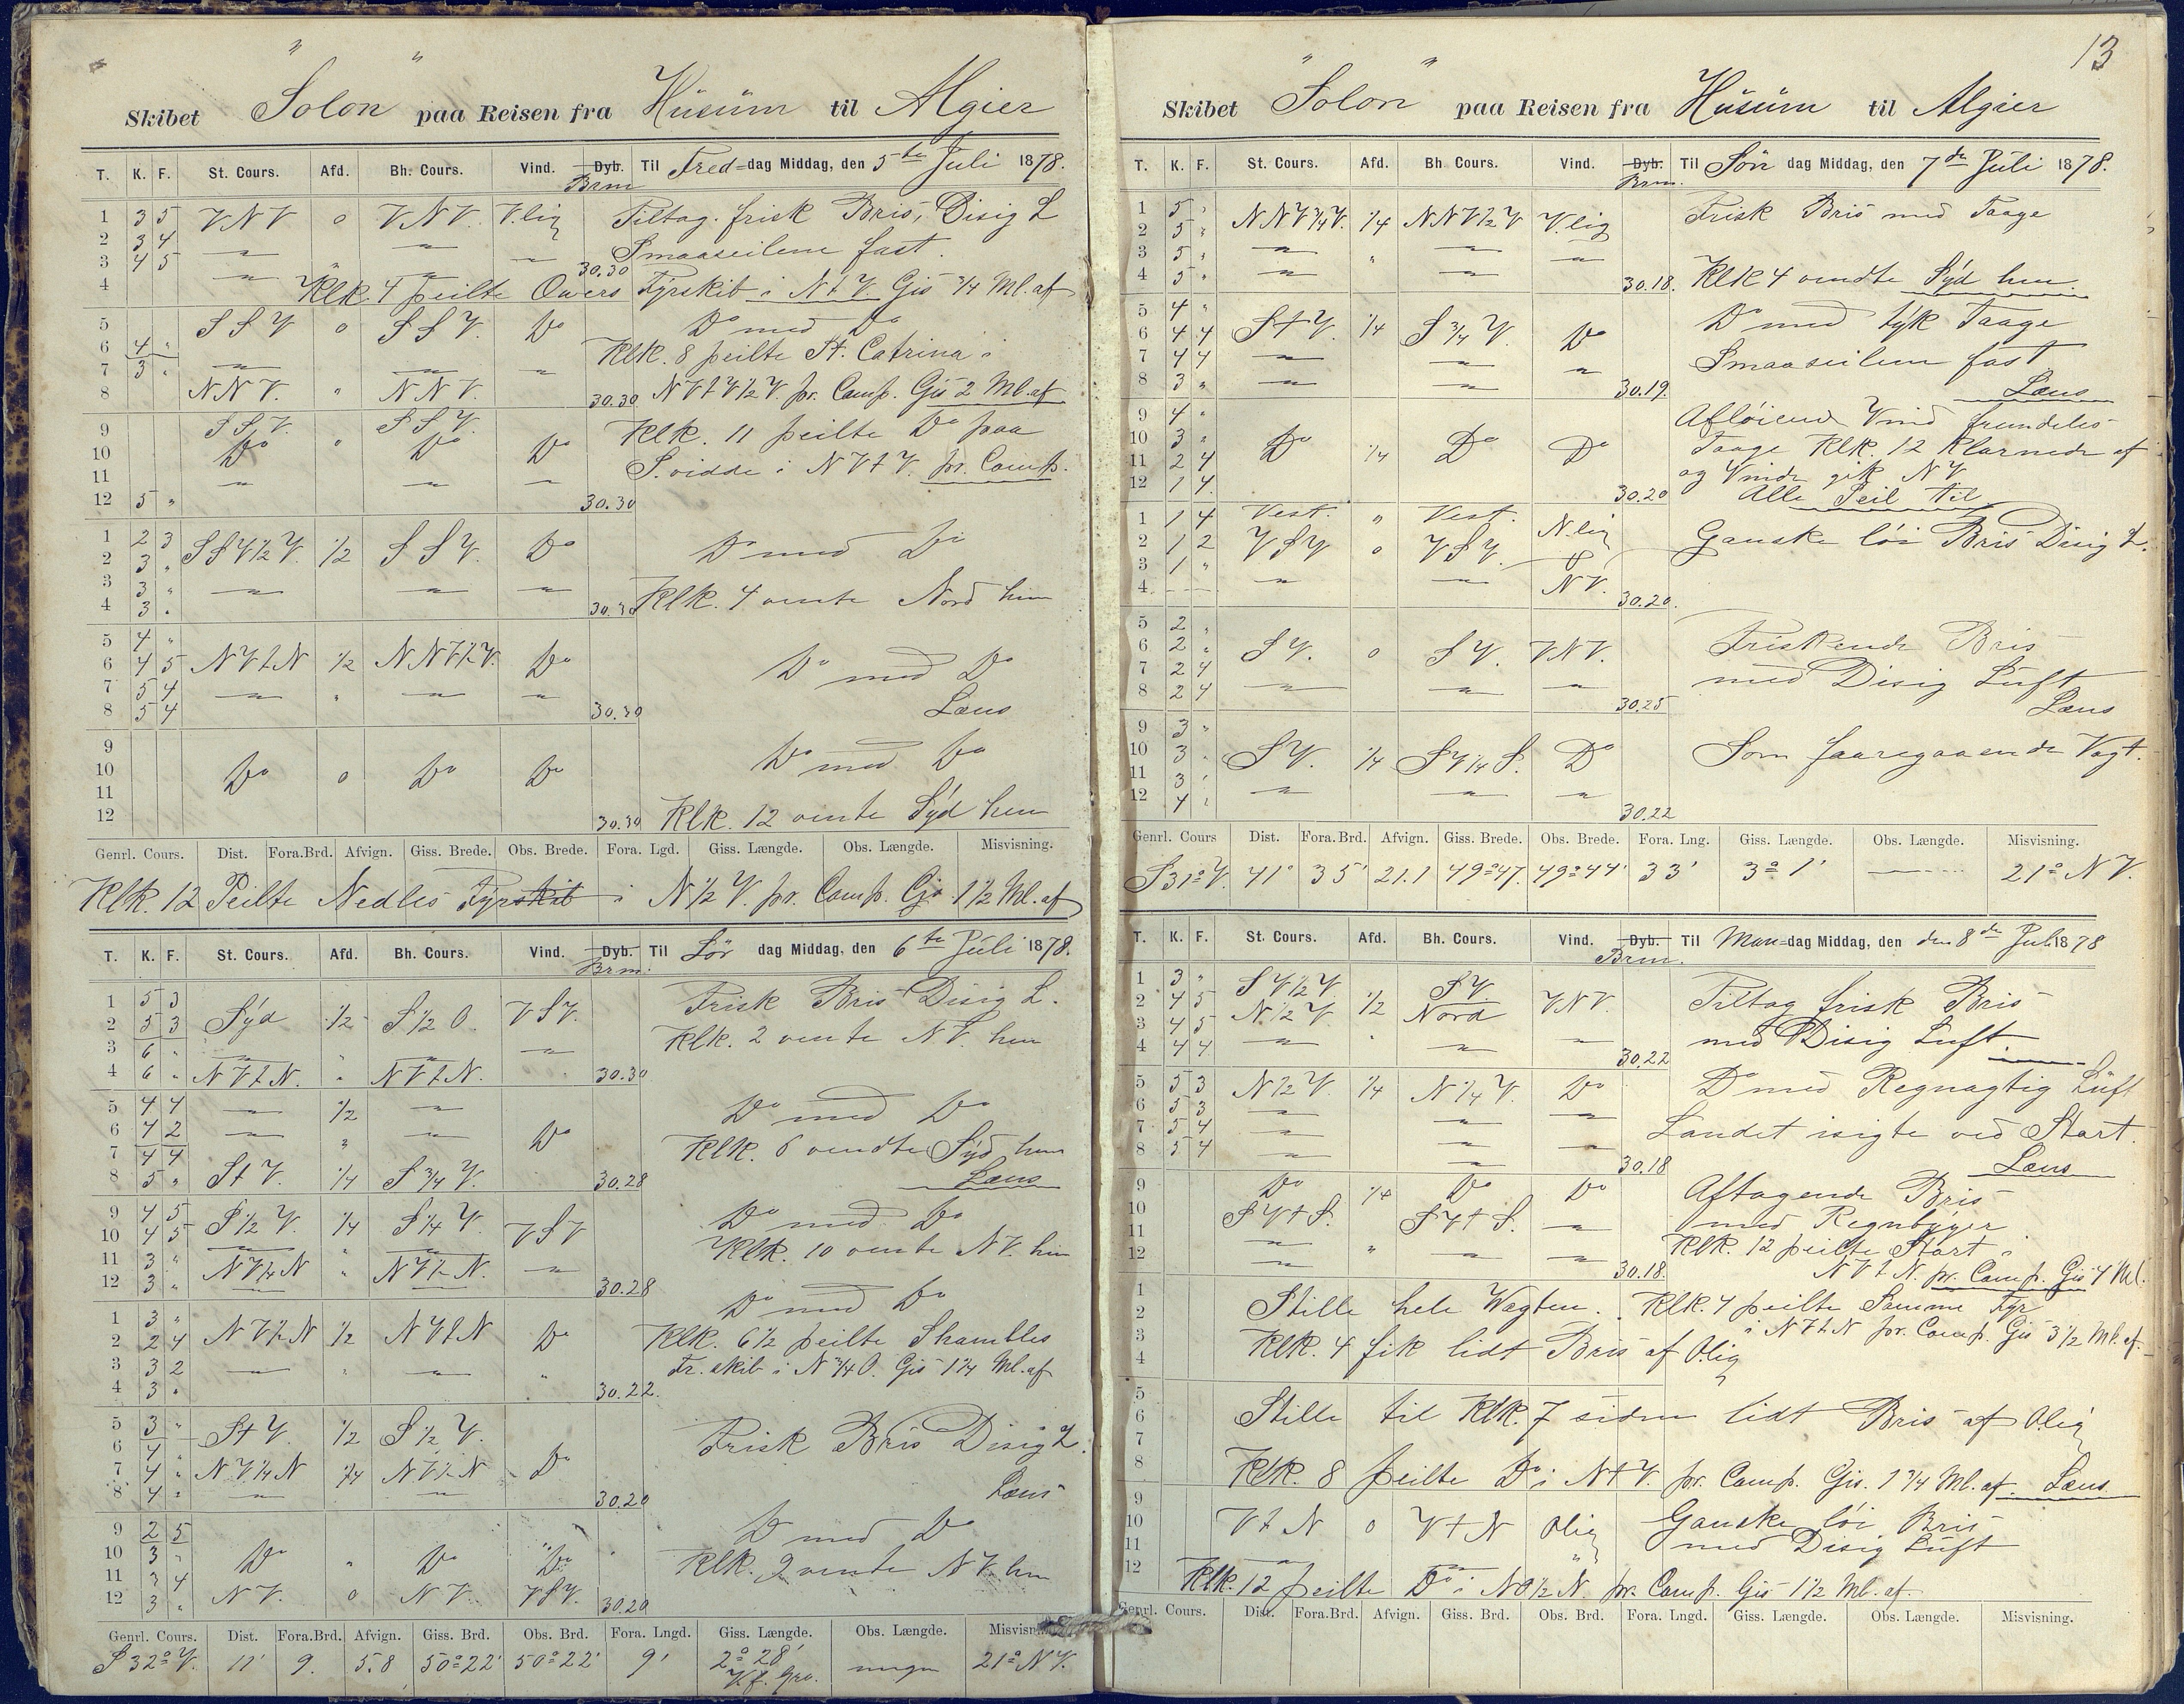 Skibet "Solon" paa Reisen fra Hüsüm til Algier
T. K. F. St. Cours. Afd. Bh. Cours. Vind. Dyb. Til Fred=dag Middag, den 5te Juli 1878.
Brm
1 3 5 VNV 0 VNV. V.lig Tiltag. frisk Bris, Disig L
2 3 4 Smaaseilene fast.
3 4 5 30.30
4 Klk 4 peilte Owers Fyrskib i NtV. Gis 3/4 Ml. af
5 SSV 0 SSV. Do Do med Do
6 4 " Klk. 8 peilte St. Catrina i
7 3 "
8 NNV. " NNV. 30.30 NVtV1/2V. pr. Comp. Gis 2 Ml. af
9 SSV. SSV. Klk. 11 peilte Do paa
10 Do " Do Do S.vidde i NVtV. pr. Comp.
11
12 5 " 30.30
1 2 3 SSV1/2V. 1/2 SSV. Do Do med Do
2 3 "
3 3 "
4 3 " 30.30 Klk. 4 vente Nord hen
5 4 "
6 4 5 NVtN 1/2 NNV1/2V. Do Do med Do
7 5 4
8 5 4 30.30 Læns
9 Do med Do
10 Do 0 Do Do
11
12 30.30 Klk. 12 vente Syd hen
Genrl. Cours. Dist. Fora.Brd. Afvign. Giss. Brede. Obs. Brede. Fora. Lgd. Giss. Længde. Obs. Længde. Misvisning.
Klk. 12 Peilte Nedles Fyrskib i N1/2V. pr. Comp. Gis 1 1/2 Ml. af
T. K. F. St. Cours. Afd. Bh. Cours. Vind. Dyb. Til Lör dag Middag, den 6te Juli 1878.
Brm.
1 5 3 Frisk Bris Disig L.
2 5 3 Syd 1/2 S1/2O. VSV. Klk. 2 vente NV. hen
3 6 "
4 6 " NVtN. " NVtN. 30.30
5 4 4 1/2 Do med Do
6 4 2 " Do Klk. 6 vendte Syd hen
7 4 4
8 5 " StV. 1/4 S3/4V. 30.28 Læns
9 4 5 S1/2V. 1/4 S1/4V. VSV Do med Do
10 4 5 Klk. 10 vente NV. hen
11 3 "
12 3 " 30.28
1 3 " Do med Do
2 2 4 1/2 NVtN Do Klk. 6 1/2 peilte Shambles
3 3 2 Fr. skib i N3/4O. Gis 1 1/4 Ml. af
4 3 " 30.22.
5 3 " StV. 1/2 S1/2V. Frisk Bris Disig L.
6 4 "
7 4 " NV1/4N 1/4 Do
8 4 " 30.20 Læns
9 2 5 Do med Do
10 3 " Do " Do Do Klk. 9 vente NV. hen
11 3 4
12 3 " NV. 0 NV. VSV. 30.20
Genrl. Cours. Dist. Fora.Brd. Afvign. Giss. Brd. Obs. Brd. Fora. Lngd. Giss. Længde. Obs. Længde. Misvisn
S32°V. 11' 9. 5.8 50°22' 50°22' 9' 2°28' 21° NV.
V.f. Grv.
13
Skibet "Solon" paa Reisen fra Hüsüm til Algier
T. K. F. St. Cours. Afd. Bh. Cours. Vind. Dyb. Til Sön dag Middag, den 7de Juli 1878.
Brm.
1 5 " NNV3/4V. 1/4 NNV1/2V V.lig Frisk Bris med Taage
2 5 "
3 5 "
4 5 " 30.18. Klk 4 vendte Syd hen.
5 4 " Do med tyk Taage
6 4 4 StV. 1/4 S3/4V. Do Smaaseilene fast
7 4 4
8 3 " 30.19. Læns
9 4 " Afløiende Vind fremdeles
10 3 " Do 1/4 Do Do Taage Klk. 12 Klarnede af
11 2 4 og Vinde gik NV
12 1 4 30.20 Alle Seil til
1 1 4 Vest. " Vest. N.lig Ganske löi Bris Disig L.
2 1 2 VSV 0 VSV.
3 1 " NV.
4 30.20.
5 2 " Friskende Bris
6 2 " SV. 0 SV. VNV. med Disig Luft
7 2 4
8 2 4 30.25 Læns
9 3 "
10 3 " SV. 1/4 SV1/4S. Do Som faaregaaende Vagt.
11 3 "
12 4 " 30.22
Genrl. Cours Dist. Fora.Brd. Afvign. Giss. Brede. Obs. Brede. Fora. Lng. Giss. Længde. Obs. Længde. Misvisning.
S31°V. 41° 35' 21.1 49°47. 49°44' 33' 3° 1' 21° NV.
T. K. F. St. Cours. Afd. Bh. Cours. Vind. Dyb. Til Man=dag Middag, den den 8de Juli 1878
Brm.
1 3 " SV1/2V SV Tiltag frisk Bris
2 4 5 N1/2V 1/2 Nord VNV. med Disig Luft
3 4 5
4 4 4 30.22
5 5 3 N1/2V. 1/4 N1/4V. Do Do med Regnagtig Luft
6 5 3
7 5 4 Landet isigte ved Start.
8 5 4 30.18 Læns
9 Do 1/4 Do Do Aftagende Bris
10 SVtS. SVtS. med Regnbyger
11 " Klk. 12 peilte Start i
12 30.18. NVtN. pr. Comp. Gis 4 Ml.
1
2 Stille hele Wagten. Klk. 4 peilte Samme Fyr
3 i NVtN pr. Comp. Gis 3 1/2 Ml. af.
4 Klk. 4 fik lidt Bris af Olig
5
6 Stille til Klk. 7 siden lidt Bris af Olig
7
8 Klk. 8 peilte Do i NtV. pr. Comp. Gis. 1 3/4 Ml. af. Læns
9
10 VtN 0 VtN Olig Ganske löi Bris
11 med Disig Luft
12 Klk. 12 peilte Do i NO1/2N. pr. Comp. Gis 1 1/2 Ml. af.
Genrl. Cours. Dist. Fora.Brd. Afvign. Giss. Brd. Obs. Brd. Fora. Lngd. Giss. Længde. Obs. Længde. Misvisning.